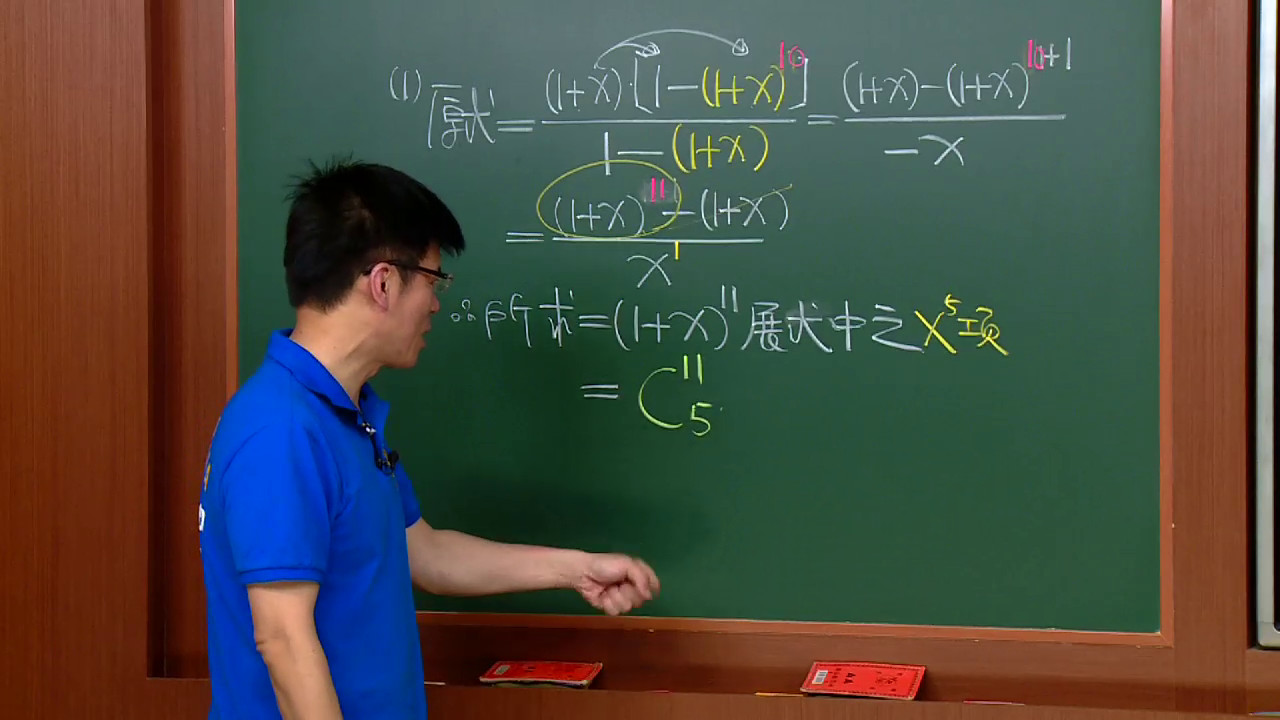 (1) 原式 = (1+x)·[1-(1+x)^10] / 1-(1+x) = (1+x)-(1+x)^10+1 / -x
= (1+x)^11 - (1+x) / x
∴所求=(1+x)^11 展式中之 x^5 项
= C^11_5